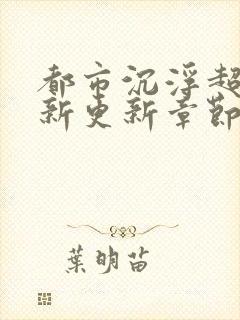 都市沉浮超
新更新章節
葉明苗